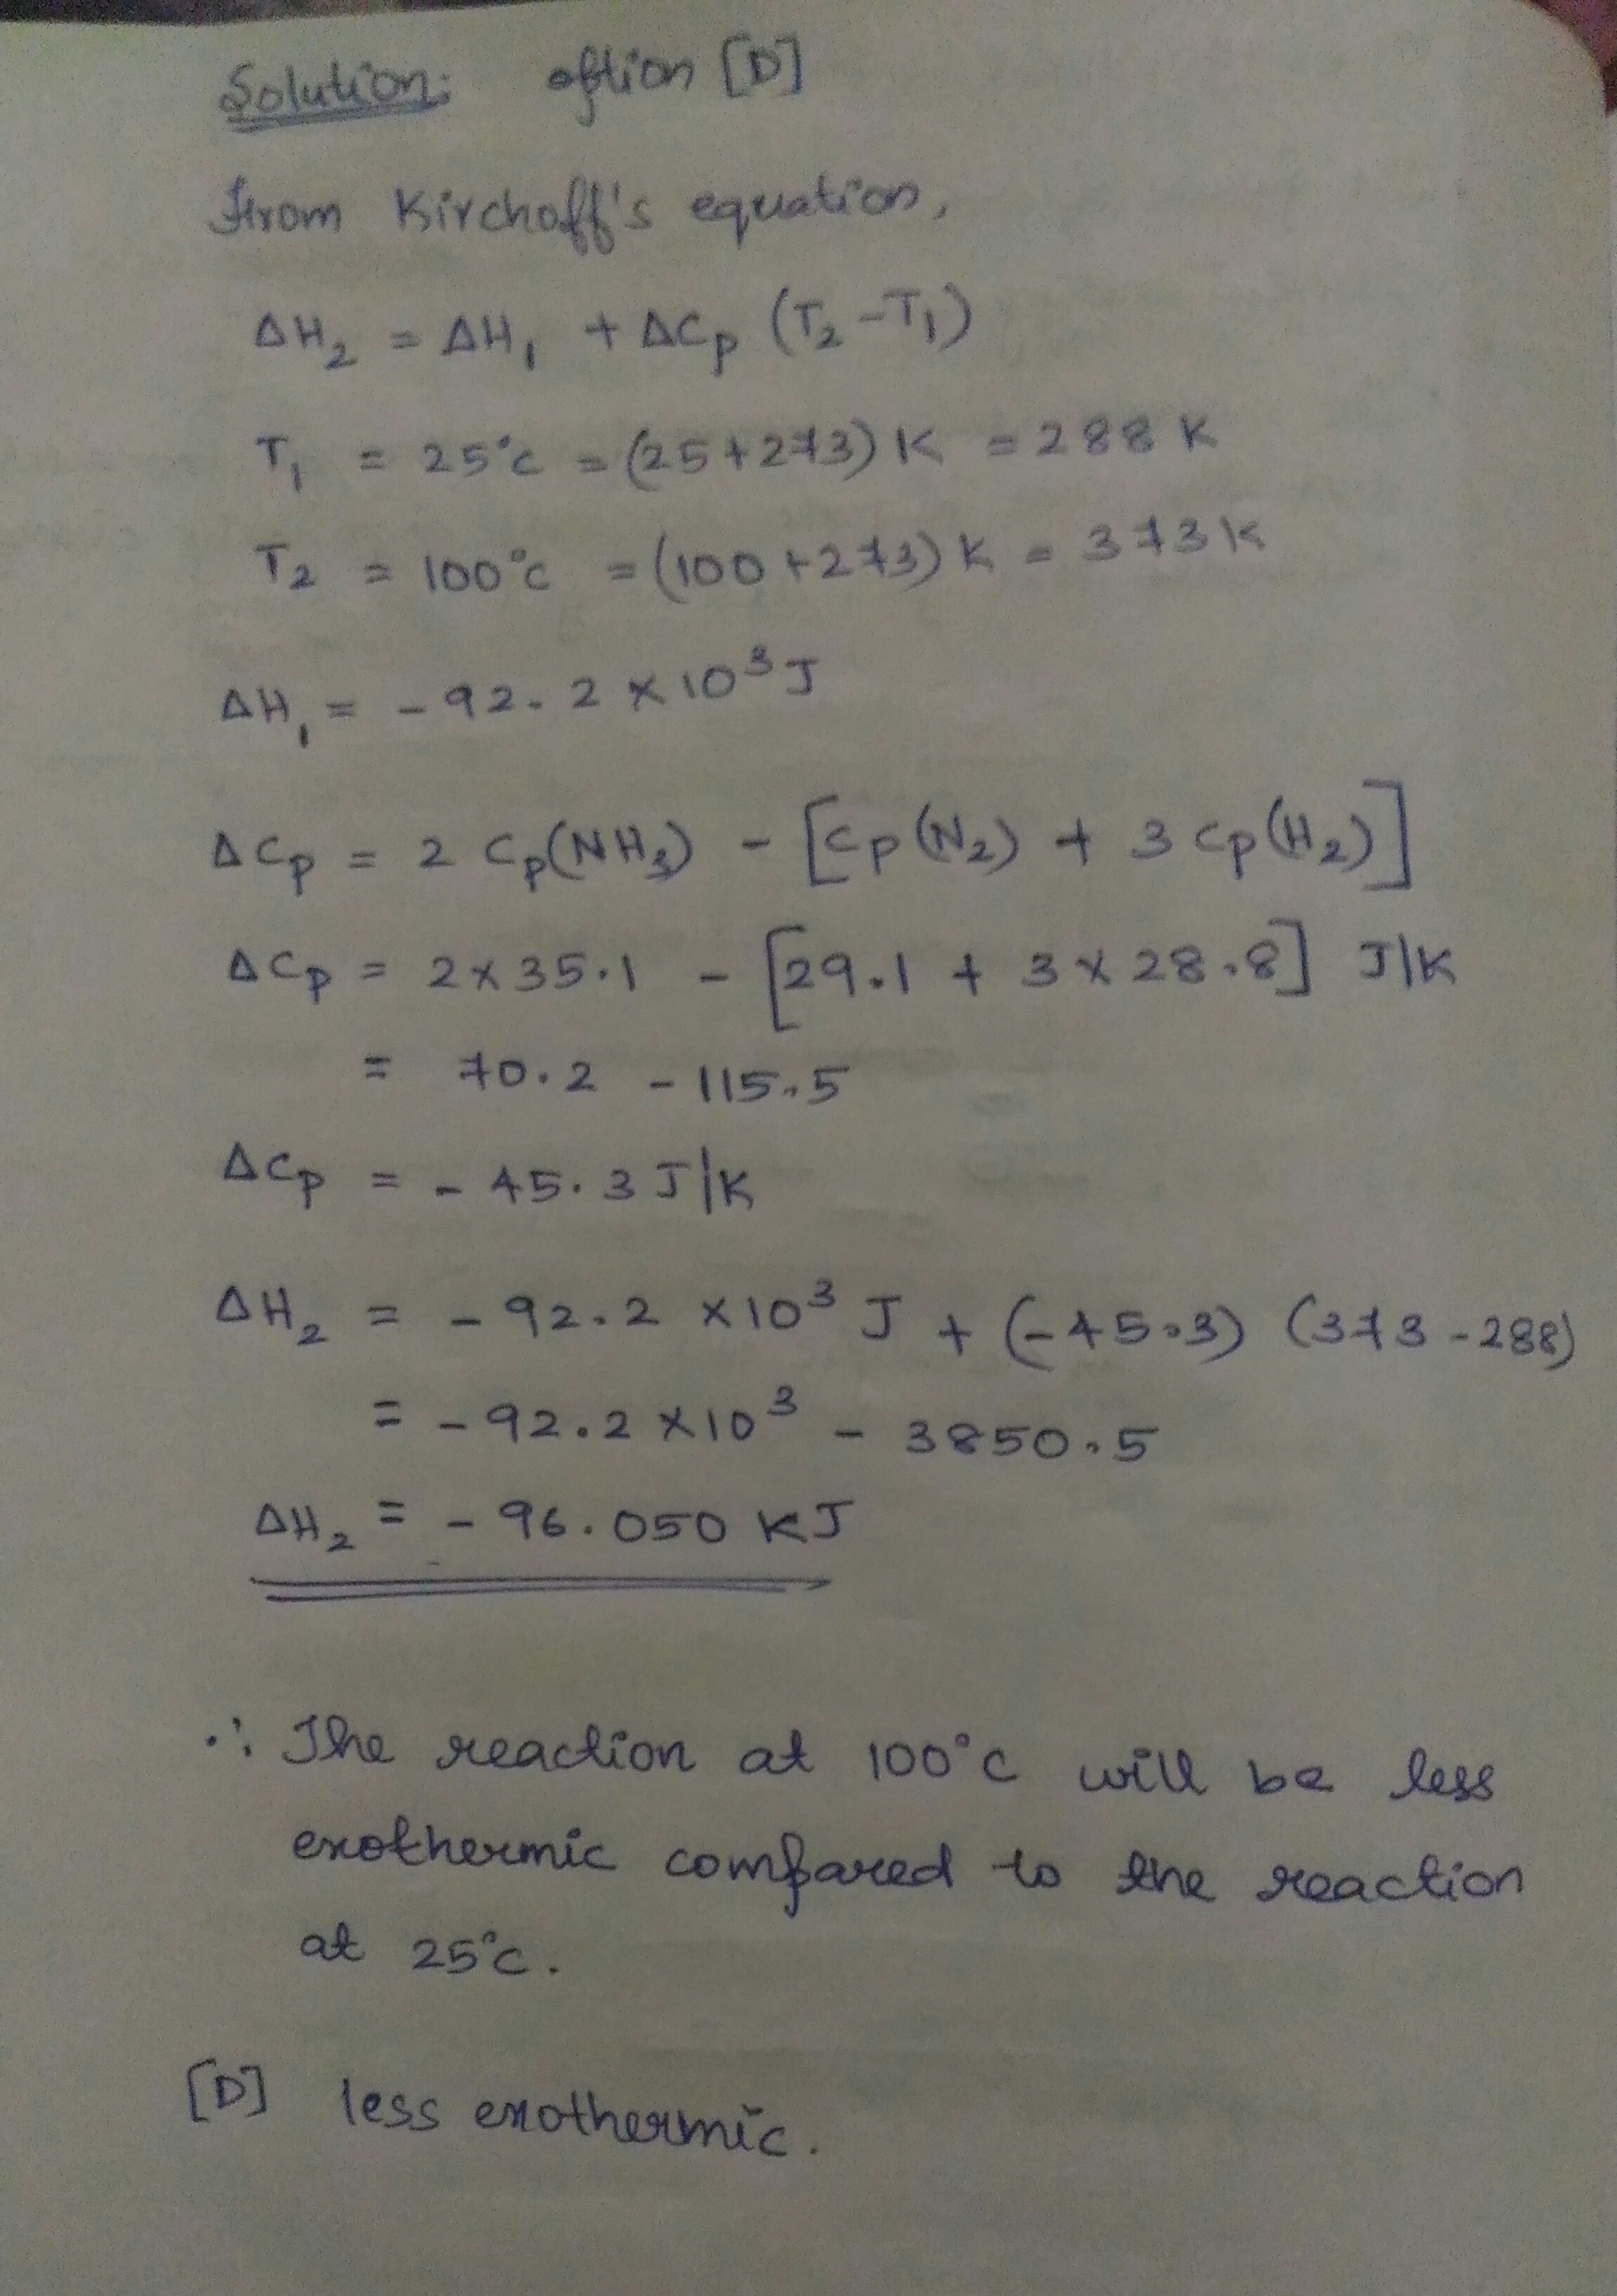 Solution: option [D]
From Kirchoff's equation,
ΔH₂ = ΔH₁ + ΔCp (T₂ - T₁)
T₁ = 25°C = (25+273) K = 288 K
T₂ = 100°C = (100+273) K = 373 K
ΔH₁ = - 92.2 × 10³ J
ΔCp = 2 Cp(NH₃) - [Cp(N₂) + 3 Cp(H₂)]
ΔCp = 2×35.1 - [29.1 + 3×28.8] J/K
= 70.2 - 115.5
ΔCp = - 45.3 J/K
ΔH₂ = - 92.2 × 10³ J + (-45.3) (373 - 288)
= - 92.2 × 10³ - 3850.5
ΔH₂ = - 96.050 KJ
∴ The reaction at 100°C will be less
exothermic compared to the reaction
at 25°C.
[D] less exothermic.